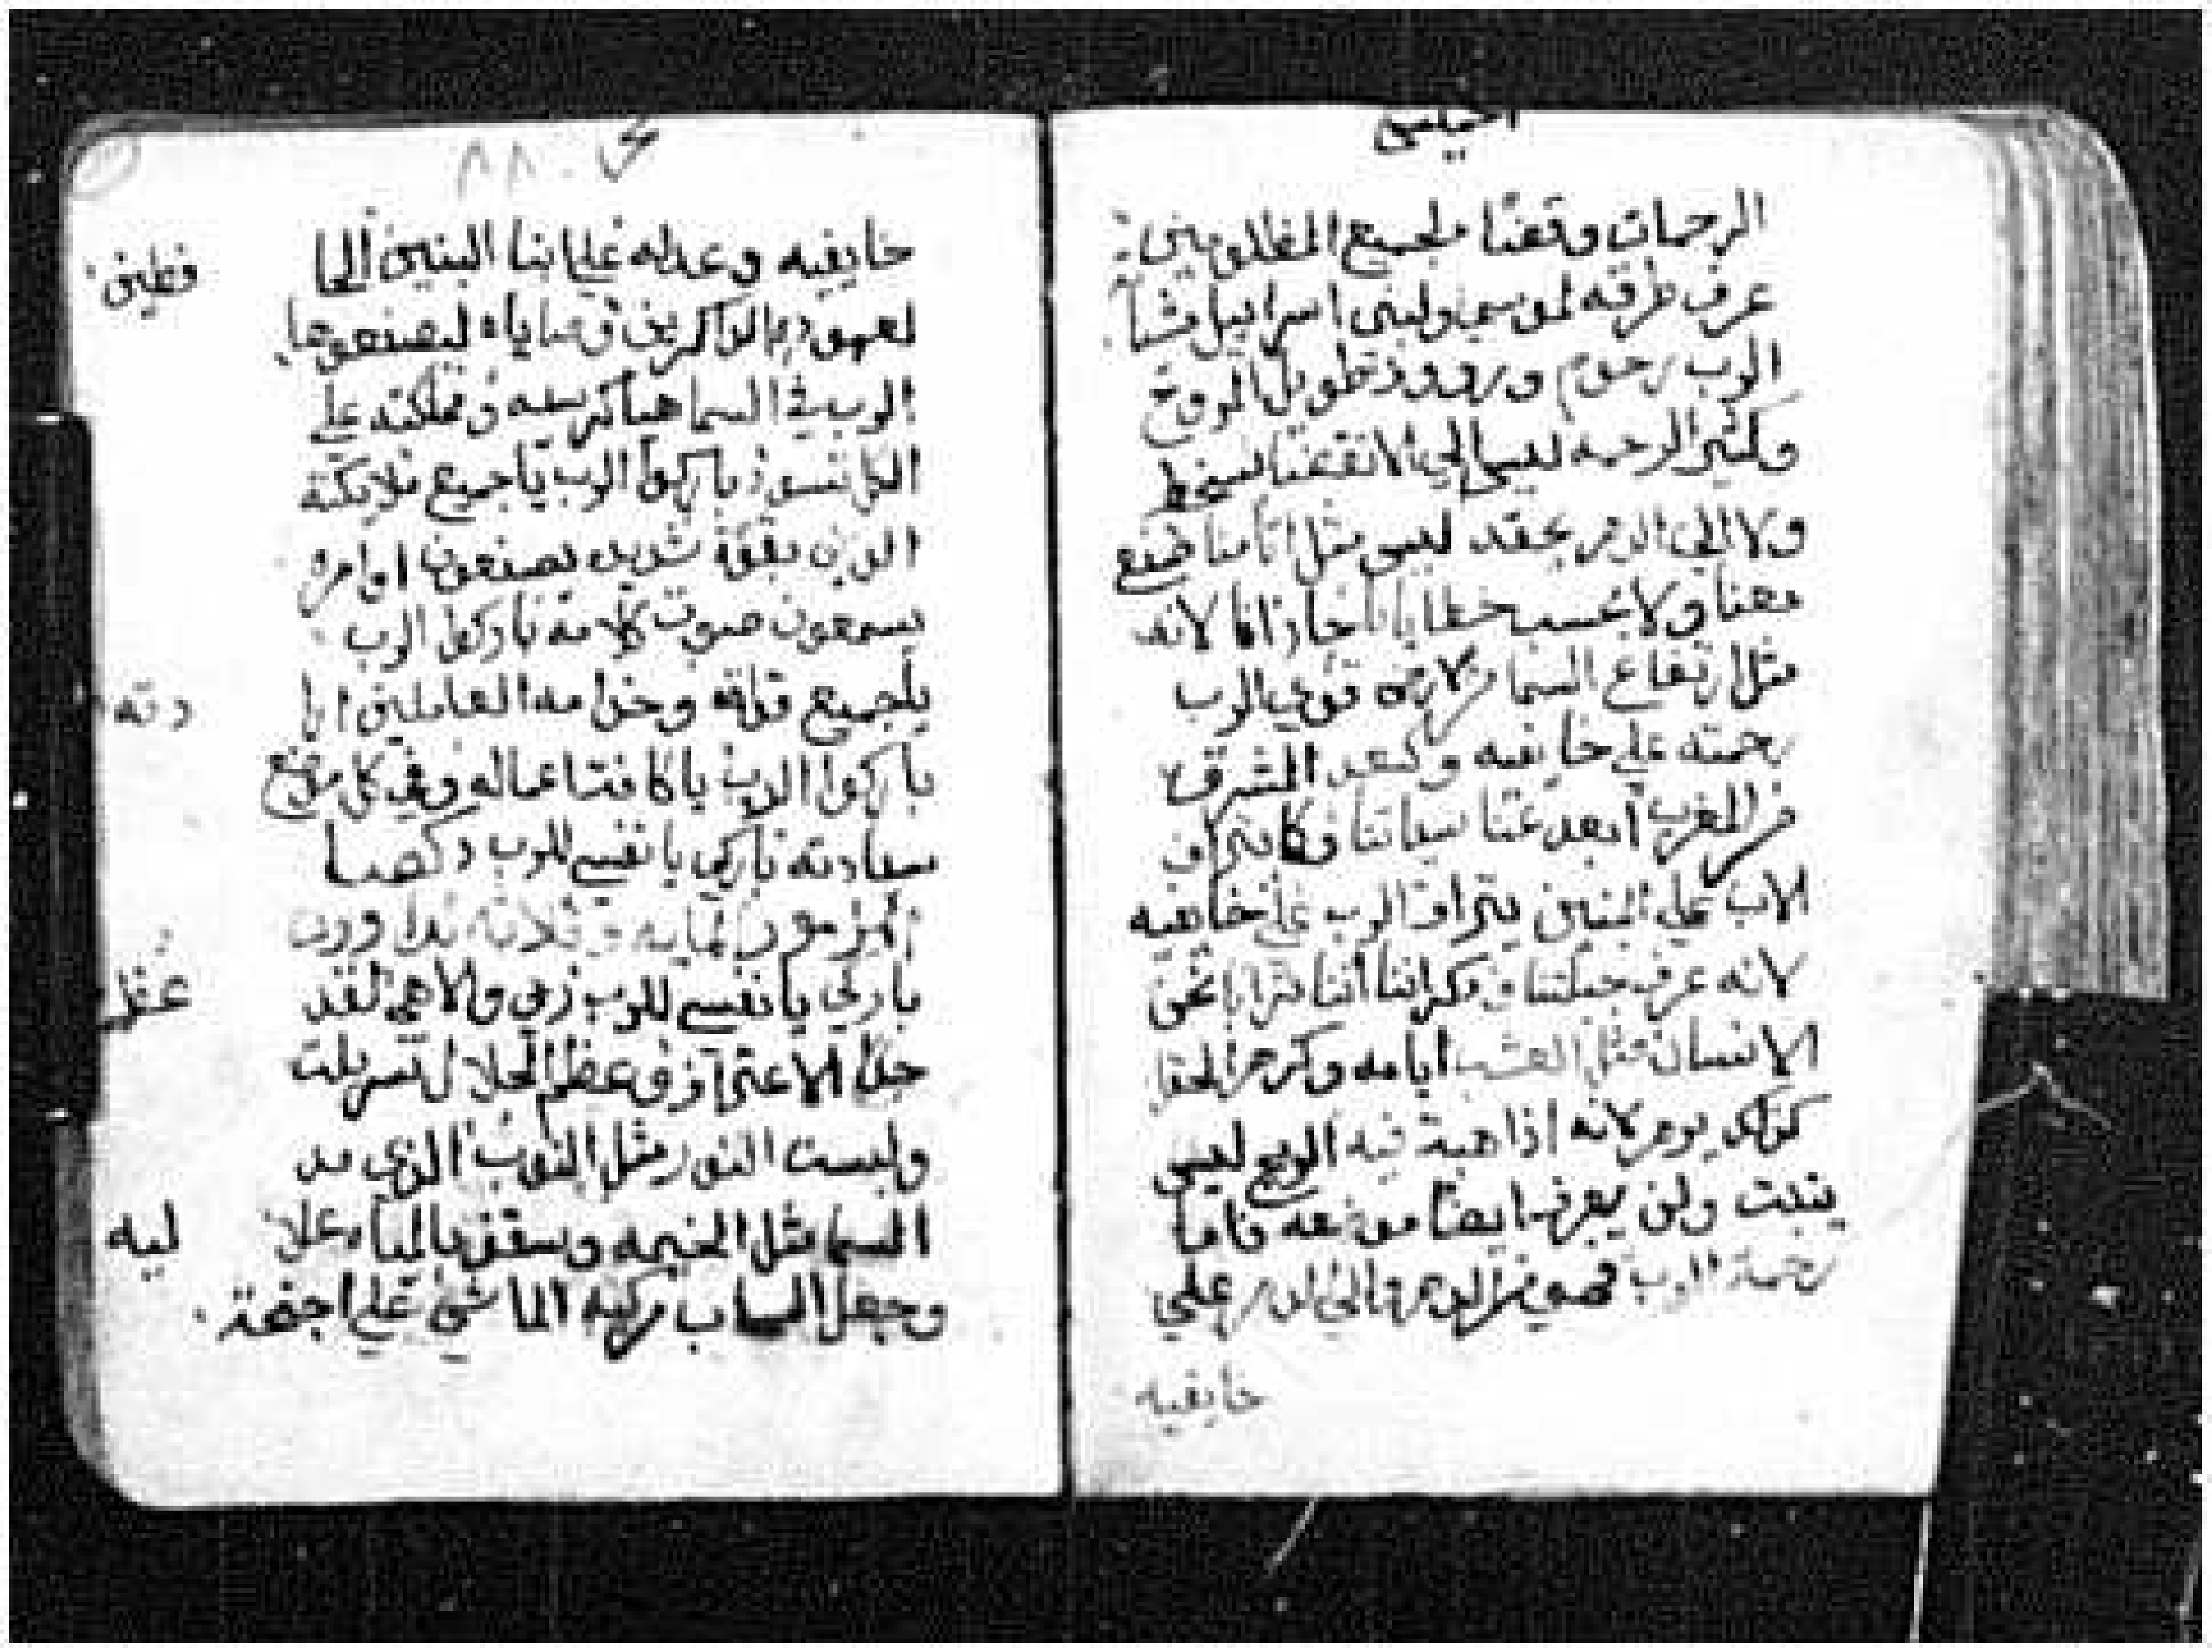 الخميس
الرحمات وقضا لجميع المظلومين
عرف طرقه لموسى ولبني اسراييل مشاته
الرب رحوم وروف طويل الروح
وكثير الرحمه ليس الي الانقضا يسخط
ولا الي الدهر يحقد ليس مثل اثامنا صنع
معنا ولا بحسب خطايانا جازانا لانه
مثل ارتفاع السما من الارض قوي الرب
رحمته علي خايفيه وكبعد المشرق
من المغرب ابعد عنا سياتنا وكما يتراف
الاب علي البنين يتراف الرب علي خايفيه
لانه عرف جبلتنا وذكر اننا تراب نحن
الانسان مثل العشب ايامه وكزهر الحقل
كذلك يزهر لانه اذا هبة فيه الريح ليس
ينبت ولن يعرف ايضا موضعه فاما
رحمة الرب فهي من الدهر والي الدهر علي
خايفيه
٨٨
خايفيه وعدله علي ابنا البنين الحا
فظين
لعهوده الذاكرين وصاياه ليصنعوها
الرب في السما هيا كرسيه ومملكته علي
الكل تسود باركوا الرب يا جميع ملايكته
الذين بقوة شديده يصنعون اوامره
يسمعون صوت كلامه باركوا الرب
يا جميع قواته وخدامه العاملين ارا
دته
باركوا الرب يا كافة اعماله وفي كل موضع
سيادته باركي يا نفسي للرب
المزمور المايه وثلاثه لداوود
باركي يا نفسي للرب ربي والاهي لقد
عظمـ
جدا الاعتراف وعظم الجلال تسربلت
ولبست النور مثل الثوب الذي مد
السما مثل الخيمه وسقف بالمياه علا
ليه
وجعل السحاب مركبه الماشي علي اجنحة